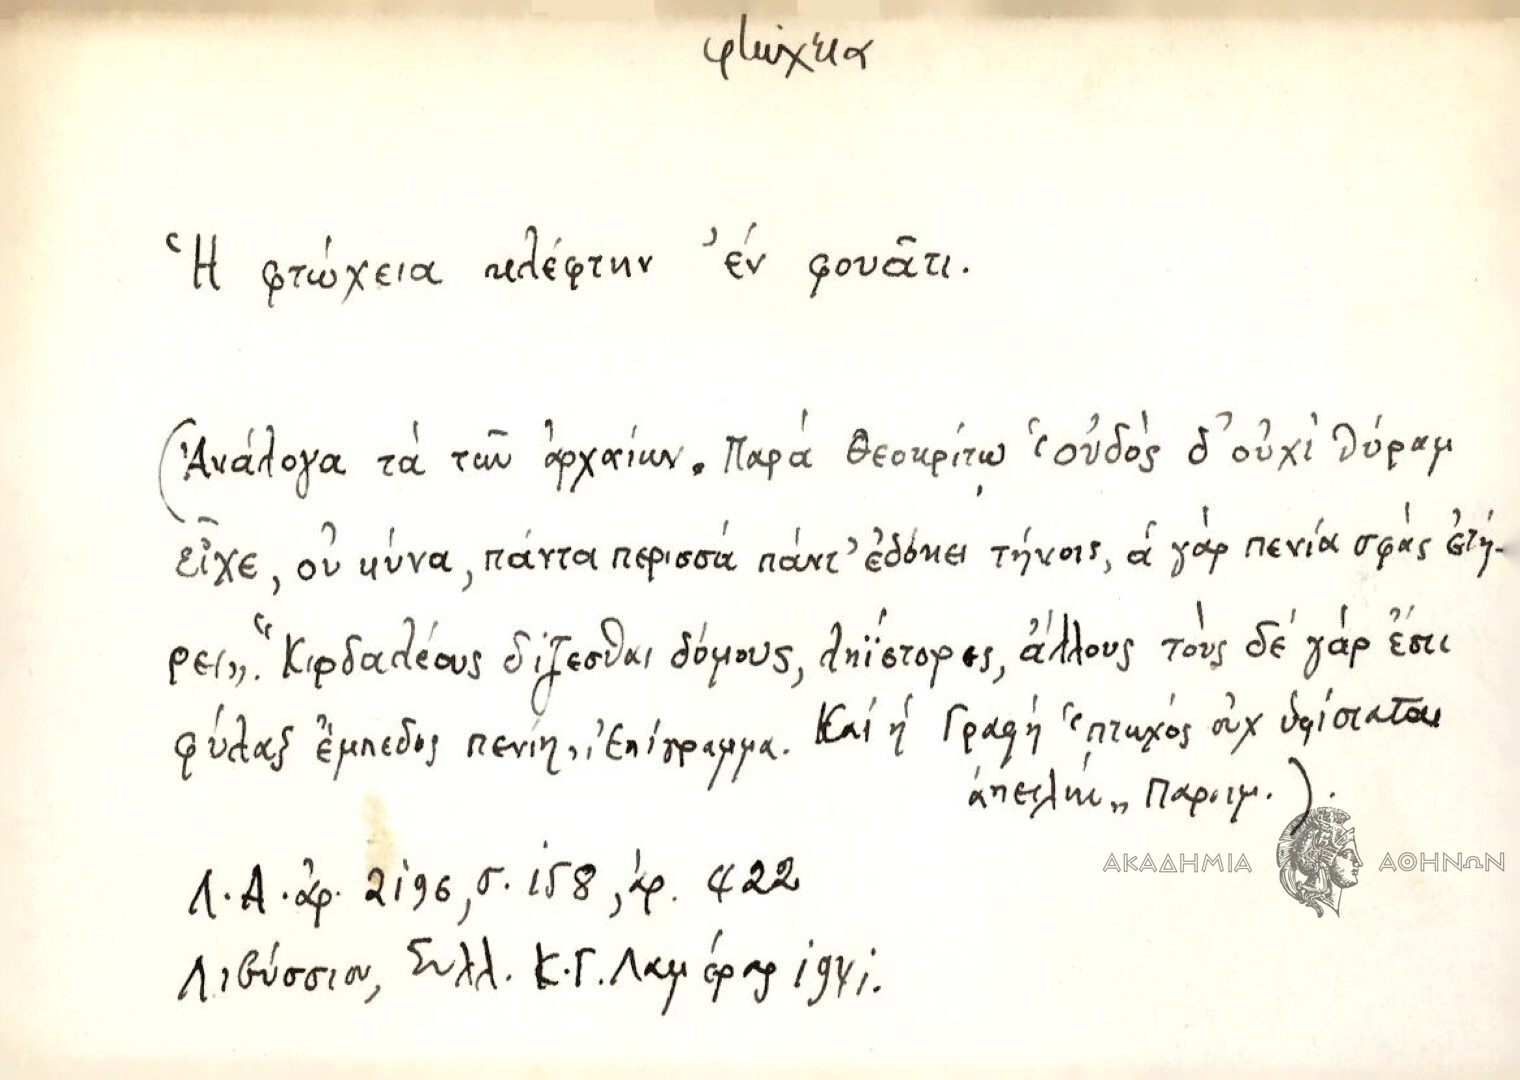 φτώχεια
Ἡ φτώχεια κλέφτην ’έν φουᾶτι.
(Ἀνάλογα τὰ τῶν ἀρχαίων. Παρὰ Θεοκρίτω “οὐδὸς δ’ οὐχὶ θύραμ
εἶχε, οὐ κύνα, πάντα περισσὰ πάντ’ ἐδόκει τήνοις, ἁ γὰρ πενία σφὰς ἐτή-
ρει„. “Κερδαλέους δίζεσθαι δόμους, ληΐστορες, ἄλλους τοὺς δὲ γὰρ ἔστι
φύλαξ ἔμπεδος πενίη„, Ἐπίγραμμα. Καὶ ἡ Γραφὴ “πτωχὸς οὐχ ὑφίσταται
ἀπειλὴν„ Παροιμ.).
Λ.Α. ἀρ. 2196, σ. 158, ἀρ. 422
Λιβύσσιον, Συλλ. Κ.Γ. Λαμέρας 1941.
ΑΚΑΔΗΜΙΑ ΑΘΗΝΩΝ